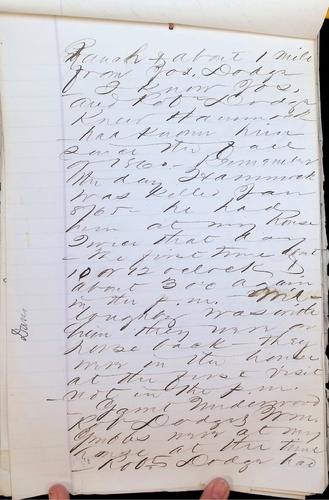 Ranch & about 1 mile
from Jos. Dodge
- I know Jos.
and Rob Dodge
Knew Hammock
had known him
since the fall
of 1860 - Remember
the day Hammock
was killed Jan
8/65 - he had
been at my house
twice that day
- the first time about
10 or 12 oclock &
about 3 oc again
in the p.m. - Wil-
loughby was with
him they were on
horse back - they
were in the house
at the first visit
not in the p.m.
- Underwood
Rob Dodge & Wm.
Grubbs were at my
house at the time
Rob Dodge had
Davis